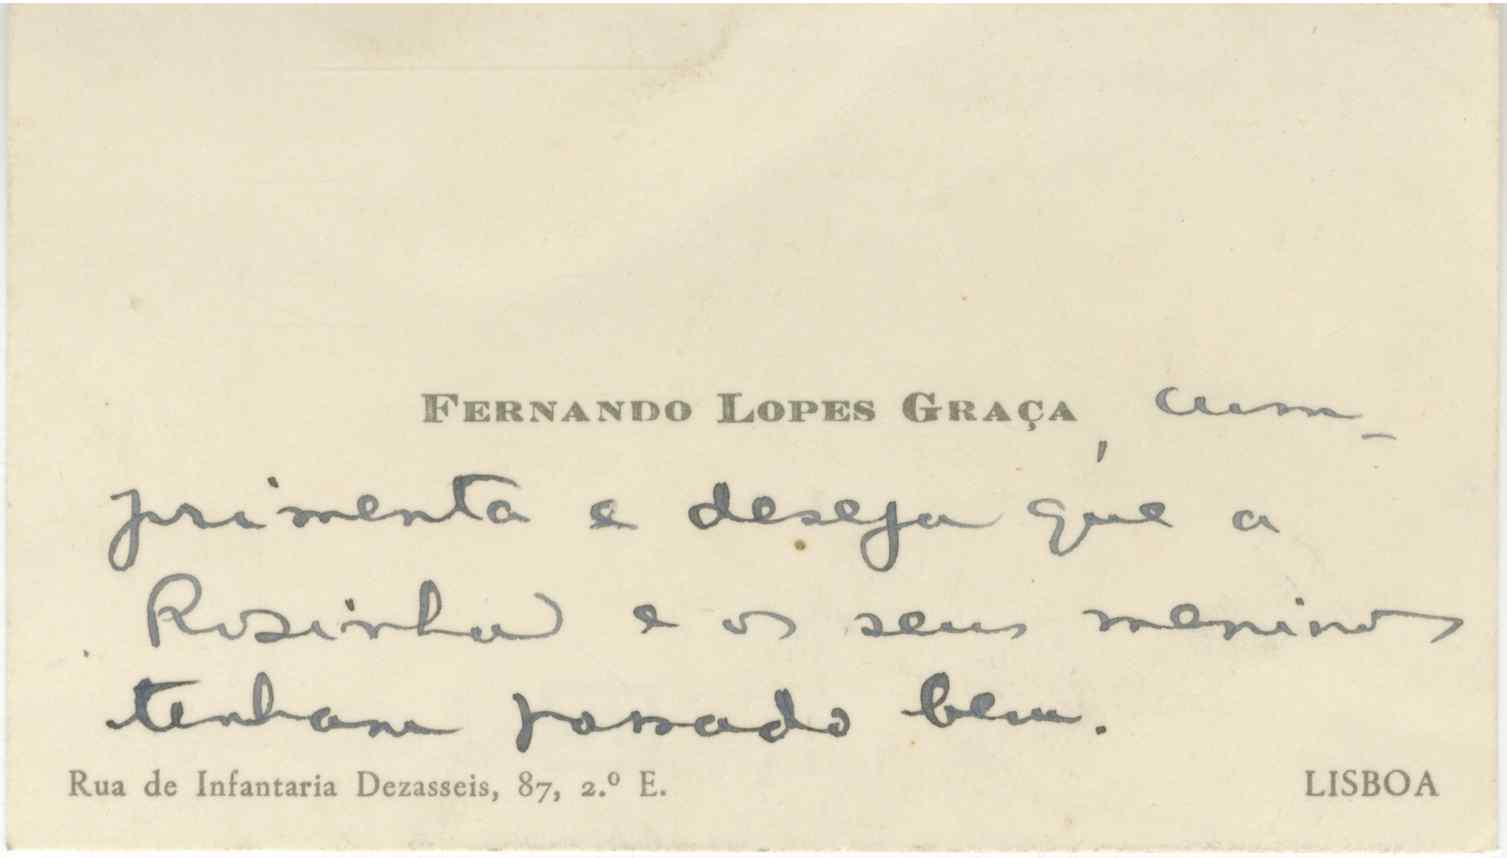 FERNANDO LOPES GRAÇA, cum-
primenta e deseja que a
Rosinha e os seus meninos
tenham passado bem.
Rua de Infantaria Dezasseis, 87, 2.º E. LISBOA